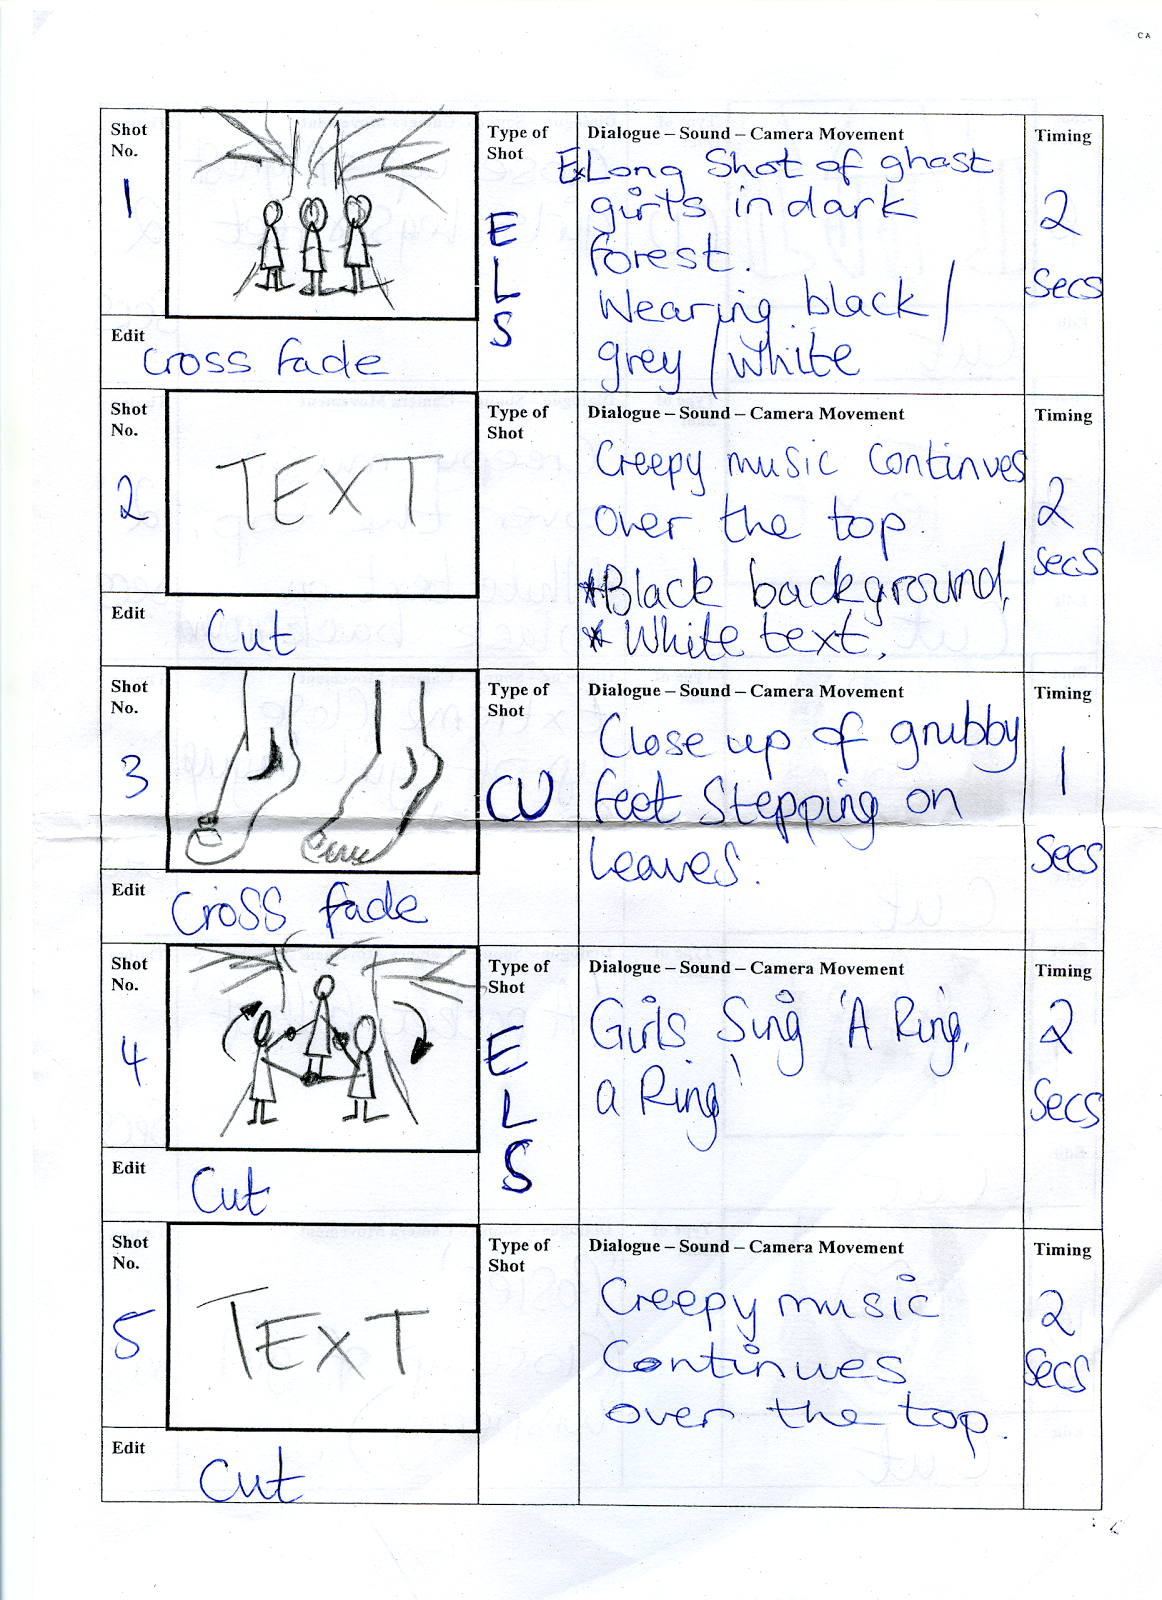 CA
Shot
No.
1
Type of
Shot
E
L
S
Dialogue – Sound – Camera Movement
Ex Long Shot of ghast
girls in dark
forest.
Wearing black /
grey / white
Timing
2
Secs
Edit
Cross fade
Shot
No.
2
TEXT
Type of
Shot
Dialogue – Sound – Camera Movement
Creepy music continues
over the top.
*Black background.
* White text.
Timing
2
Secs
Edit
Cut
Shot
No.
3
Type of
Shot
CU
Dialogue – Sound – Camera Movement
Close up of grubby
feet Stepping on
leaves.
Timing
1
Secs
Edit
Cross fade
Shot
No.
4
Type of
Shot
E
L
S
Dialogue – Sound – Camera Movement
Girls Sing 'A Ring,
a Ring'
Timing
2
Secs
Edit
Cut
Shot
No.
5
TEXT
Type of
Shot
Dialogue – Sound – Camera Movement
Creepy music
Continues
over the top.
Timing
2
Secs
Edit
Cut